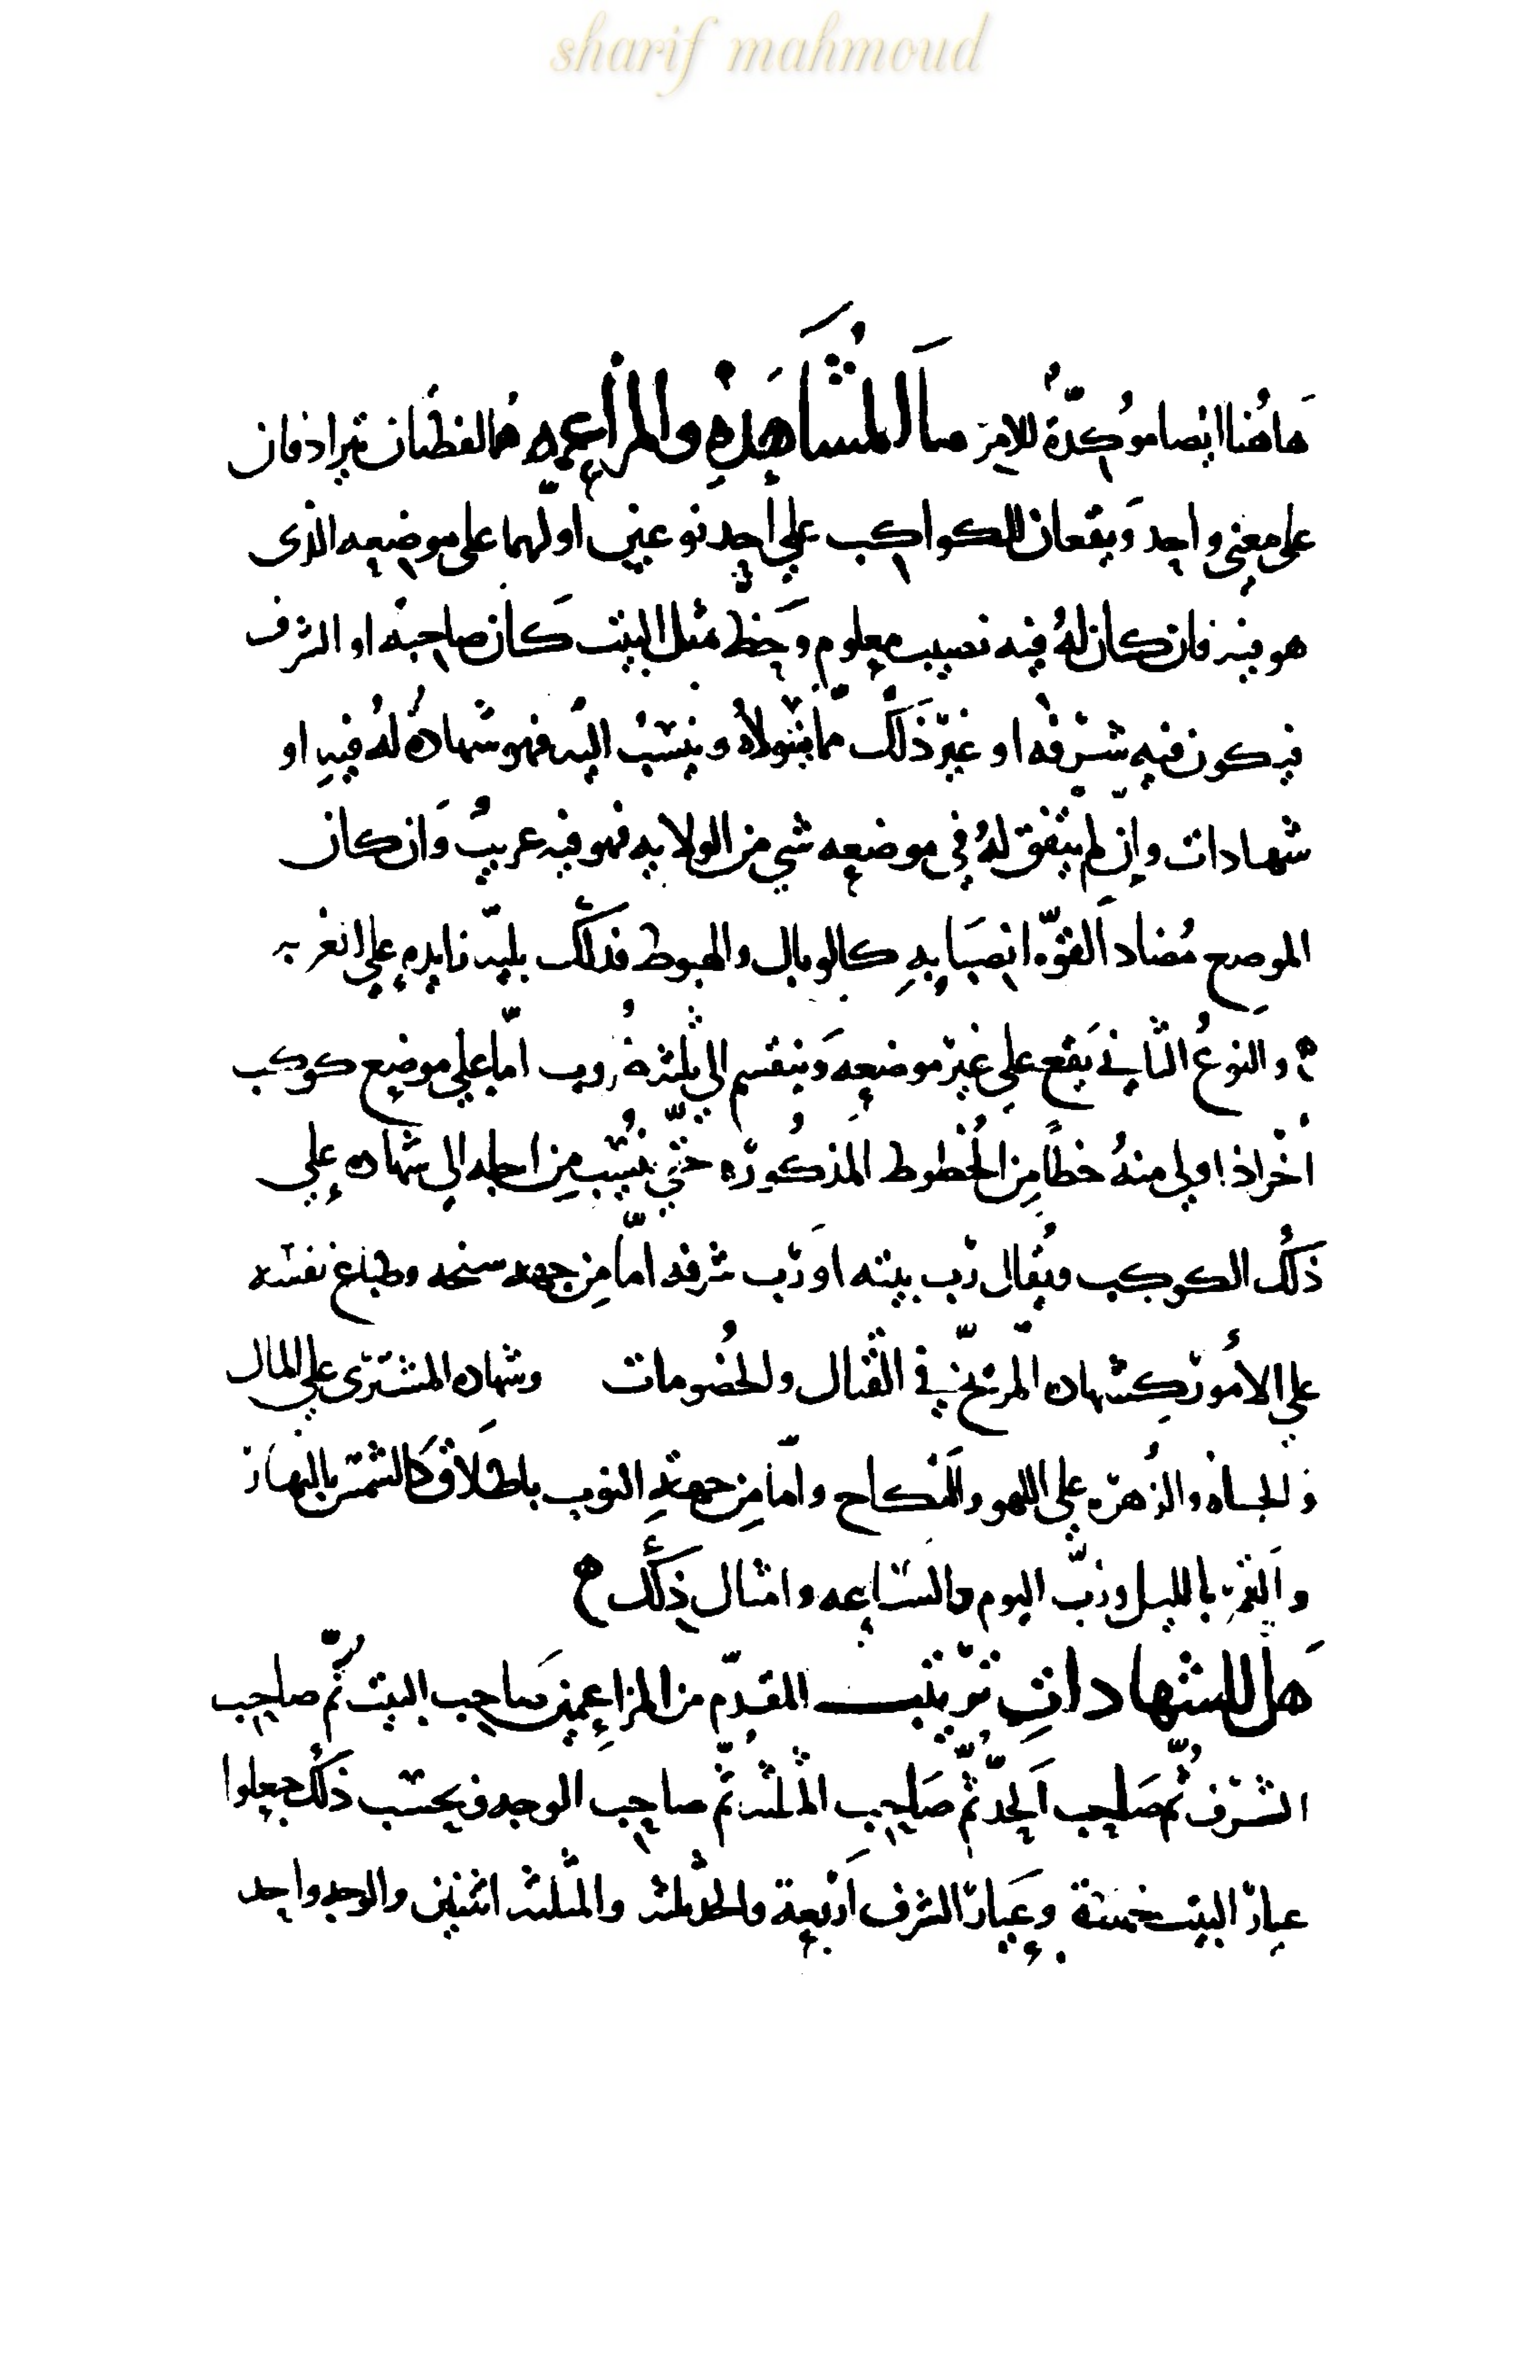 sharif mahmoud
هاهنا ايضا موكدة للامر ما المشاهدة والمزاعمه هما لفظتان تترادفان
على معنى واحد وتقعان للكواكب على احد نوعين اولهما على موضعه الذى
هو فيه فان كان له فيه نصيب معلوم وحظ مثل البيت كان صاحبه او الشرف
فيكون فيه شرفه او غير ذلك مما يتولاه وينسب اليه فهو شهادة له فيه او
شهادات وان لم يتفق له فى موضعه شي من الولايه فهو فيه غريب وان كان
الموضع مضاد القوه ايضا به كالوبال والهبوط فذلك بليه زايده على الغربه
ه والنوع الثاني يقع على غير موضعه وينقسم الى ثلثة ضروب اما على موضع كوكب
اخر اذا ولى منه خطا من الخطوط المذكوره حتى نسب من اجله الى شهاده على
ذلك الكوكب ويقال رب بيته او رب شرفه اما من جهه سنخه وطباع نفسه
على الامور كشهاده المريخ في القتال والخصومات وشهاده المشترى على المال
والجاه والزهره على اللهو والنكاح واما من جهة النوب باطلاق كالشمس بالنهار
والقمر بالليل ورب اليوم والساعه وامثال ذلك ه
هل للشهادات ترتيب المقدم من المزاعمين صاحب البيت ثم صاحب
الشرف ثم صاحب الحد ثم صاحب المثلثه ثم صاحب الوجه وبحسب ذلك جعلوا
عيار البيت خمسة وعيار الشرف اربعة والحد ثلثه والمثلثه اثنين والوجه واحد